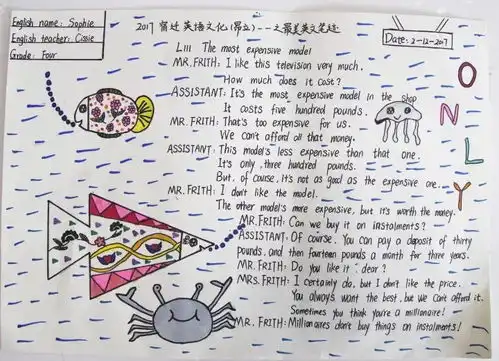 English name: Sophie
English teacher: Cissie
Grade: Four
2017 英语文化(昂立)--之最美英文笔迹
Date: 2-12-2017
LIII The most expensive model
MR.FRITH: I like this television very much.
How much does it cost?
ASSISTANT: It's the most expensive model in the shop
It costs five hundred pounds.
MR.FRITH: That's too expensive for us.
We can't afford all that money.
ASSISTANT: This model's less expensive than that one.
It's only three hundred pounds.
But, of course, it's not as good as the expensive one.
MR.FRITH: I don't like the model.
The other model's more expensive, but it's worth the money.
MR.FRITH: Can we buy it on instalments?
ASSISTANT: Of course. You can pay a deposit of thirty
pounds, and then fourteen pounds a month for three years.
MR.FRITH: Do you like it, dear?
MRS.FRITH: I certainly do, but I don't like the price.
You always want the best, but we can't afford it.
Sometimes you think you're a millionaire!
MR.FRITH: Millionaires don't buy things on instalments!
ONLY